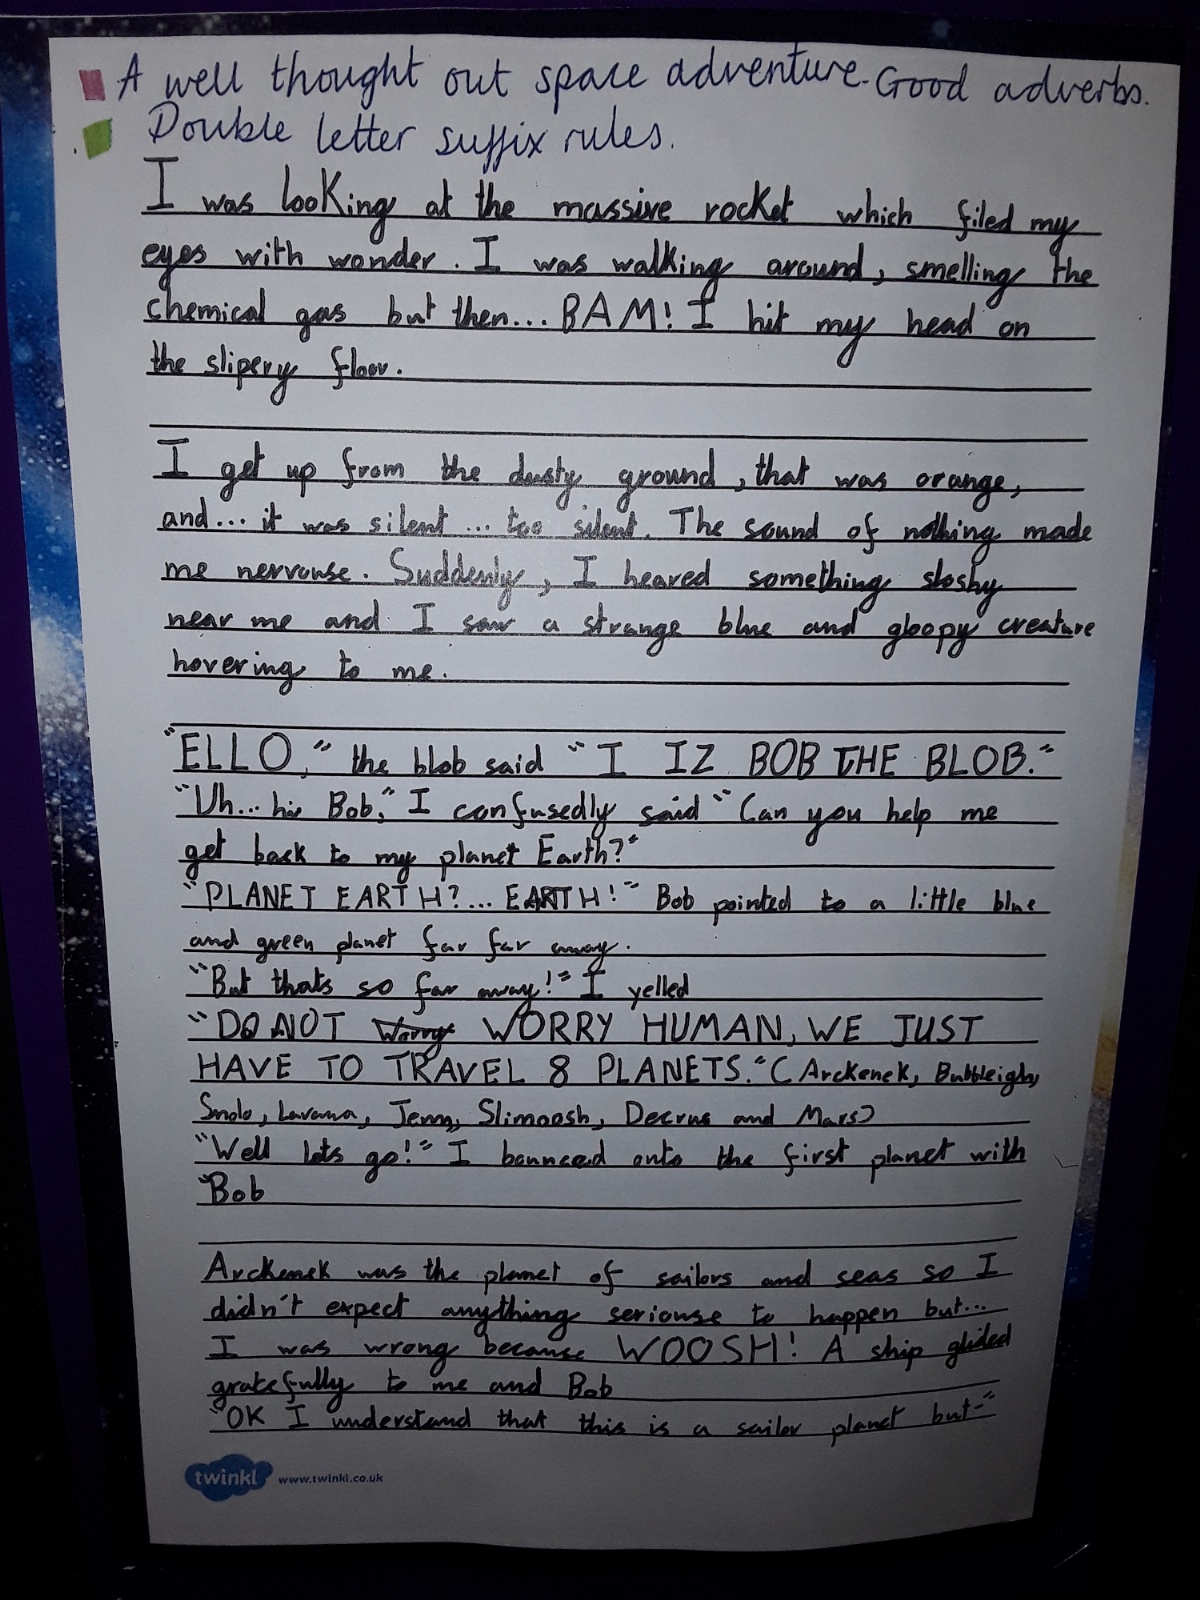 A well thought out space adventure. Good adverbs.
Double letter suffix rules.
I was looking at the massive rocket which filed my
eyes with wonder. I was walking around, smelling the
chemical gas but then... BAM! I hit my head on
the slipery floor.
I get up from the dusty ground, that was orange,
and... it was silent ... too silent. The sound of nothing made
me nervouse. Suddenly, I heared something sloshy
near me and I saw a strange blue and gloopy creature
hovering to me.
"ELLO," the blob said "I IZ BOB THE BLOB."
"Uh... hi Bob," I confusedly said "Can you help me
get back to my planet Earth?"
"PLANET EARTH?... EARTH!" Bob pointed to a little blue
and green planet far far away.
"But thats so far away!" I yelled
"DO NOT Worry WORRY HUMAN, WE JUST
HAVE TO TRAVEL 8 PLANETS." (Arckenek, Bubbleigh,
Smolo, Lavana, Jenny, Slimoosh, Decrus and Mars)
"Well lets go!" I bounced onto the first planet with
Bob
Arckenek was the planet of sailors and seas so I
didn't expect anything seriouse to happen but...
I was wrong because WOOSH! A ship glided
gratefully to me and Bob
"OK I understand that this is a sailor planet but-"
twinkl www.twinkl.co.uk